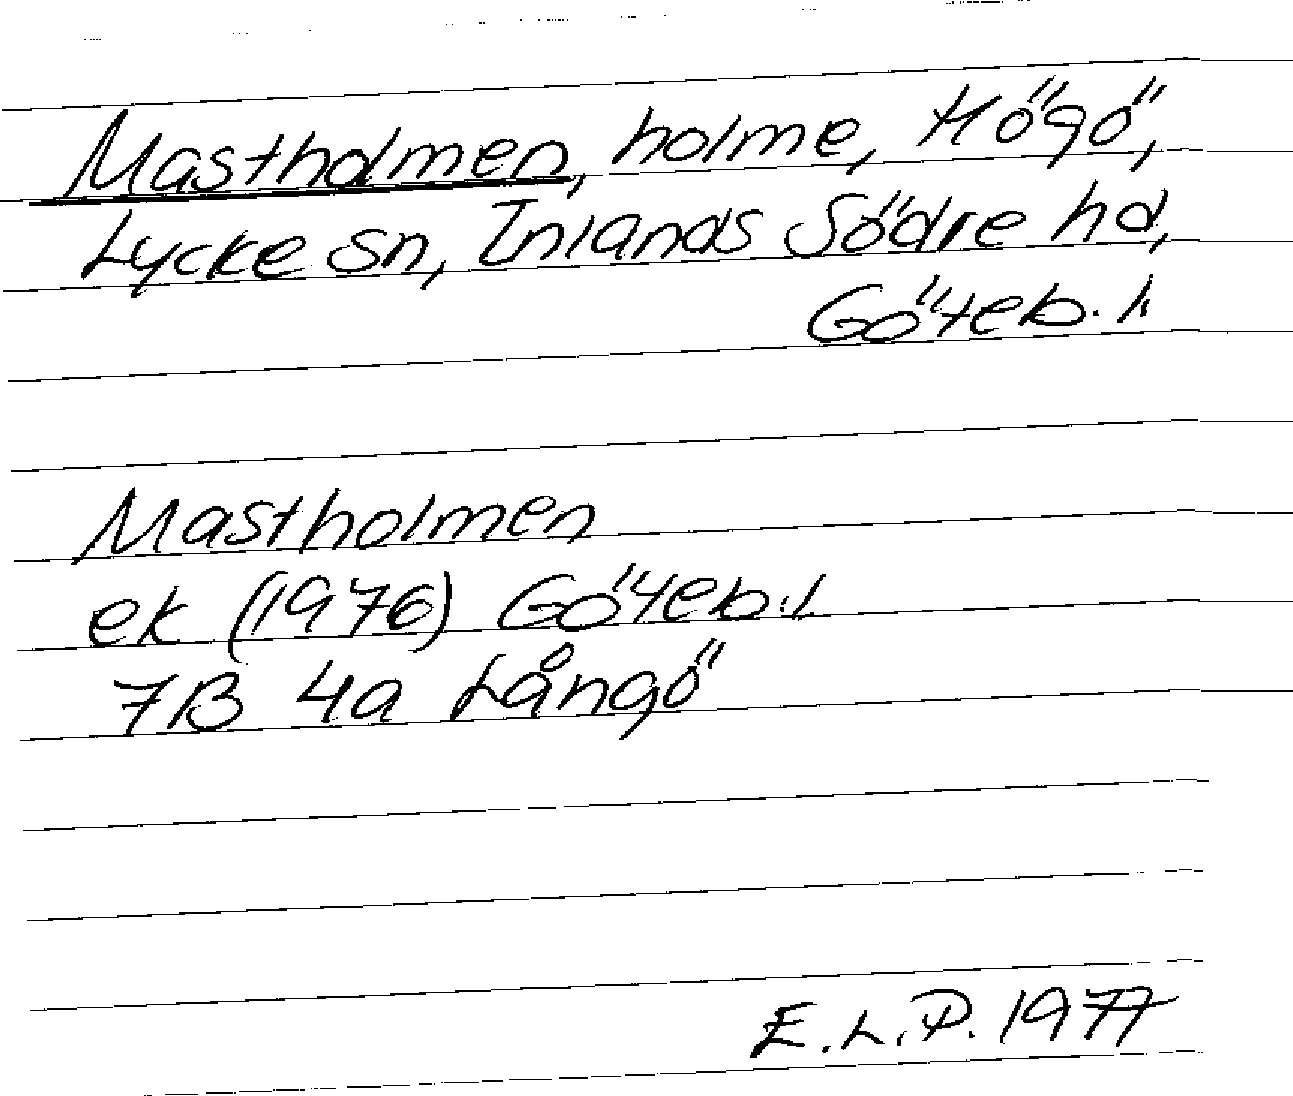 Mastholmen, holme, Högö,
Lycke sn, Inlands Södre hd,
Göteb. l.
Mastholmen
ek (1976) Göteb. l.
7B 4a Långö
E.L.P. 1977